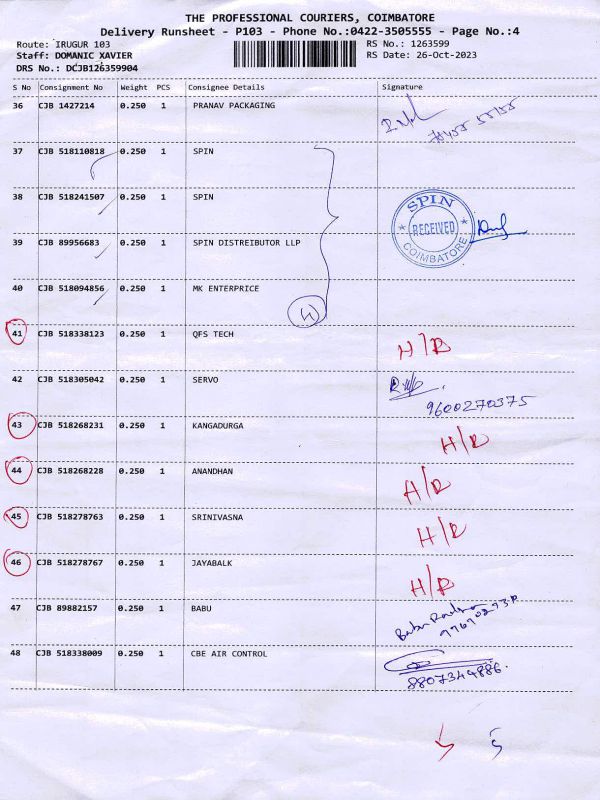 THE PROFESSIONAL COURIERS, COIMBATORE
Delivery Runsheet - P103 - Phone No.:0422-3505555 - Page No.:4
Route: IRUGUR 103 RS No.: 1263599
Staff: DOMANIC XAVIER RS Date: 26-Oct-2023
DRS No.: DCJB126359904
S No Consignment No Weight PCS Consignee Details Signature
36 CJB 1427214 0.250 1 PRANAV PACKAGING
37 CJB 518110818 0.250 1 SPIN
38 CJB 518241507 0.250 1 SPIN
SPIN
RECEIVED
COIMBATORE
39 CJB 89956683 0.250 1 SPIN DISTREIBUTOR LLP
40 CJB 518094856 0.250 1 MK ENTERPRICE
41 CJB 518338123 0.250 1 QFS TECH H/R
42 CJB 518305042 0.250 1 SERVO
9600270375
43 CJB 518268231 0.250 1 KANGADURGA H/R
44 CJB 518268228 0.250 1 ANANDHAN H/R
45 CJB 518278763 0.250 1 SRINIVASNA H/R
46 CJB 518278767 0.250 1 JAYABALK H/R
47 CJB 89882157 0.250 1 BABU
48 CJB 518338009 0.250 1 CBE AIR CONTROL
8807349886.